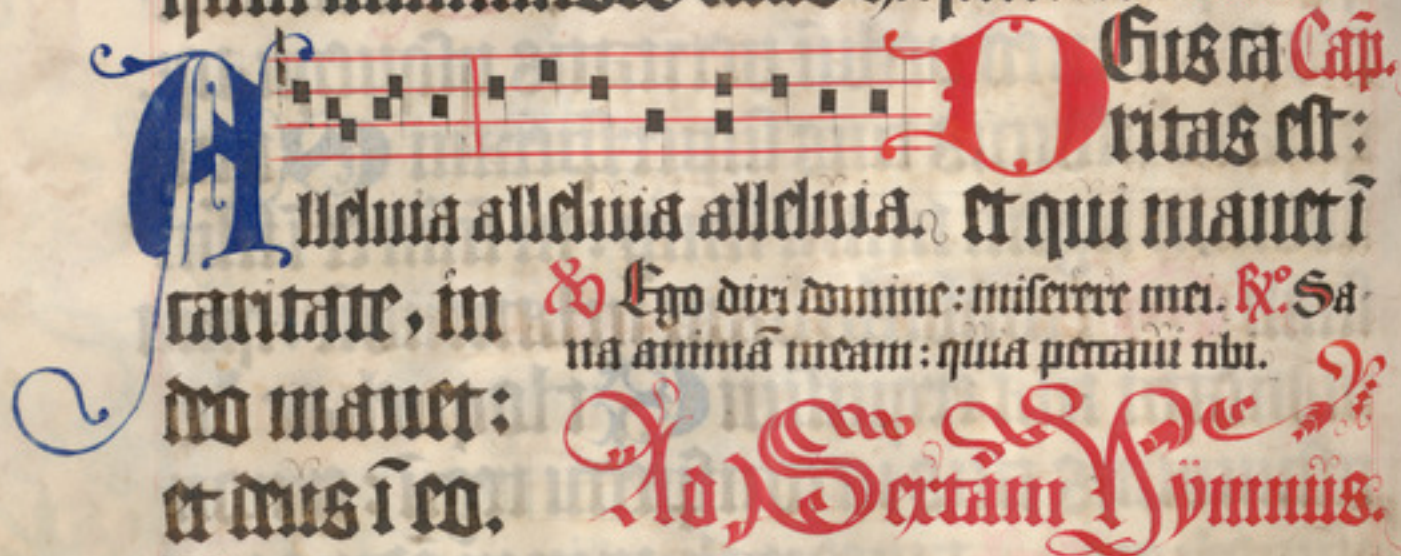 Alleluia alleluia alleluia.
Deus ca Cap̄.
ritas est:
et qui manet ī
caritate, in
deo manet:
et deus ī eo.
℣ Ego dixi domine: miserere mei. ℟º. Sa
na animā meam: quia peccaui tibi.
Ad Sextam Hÿmnus.